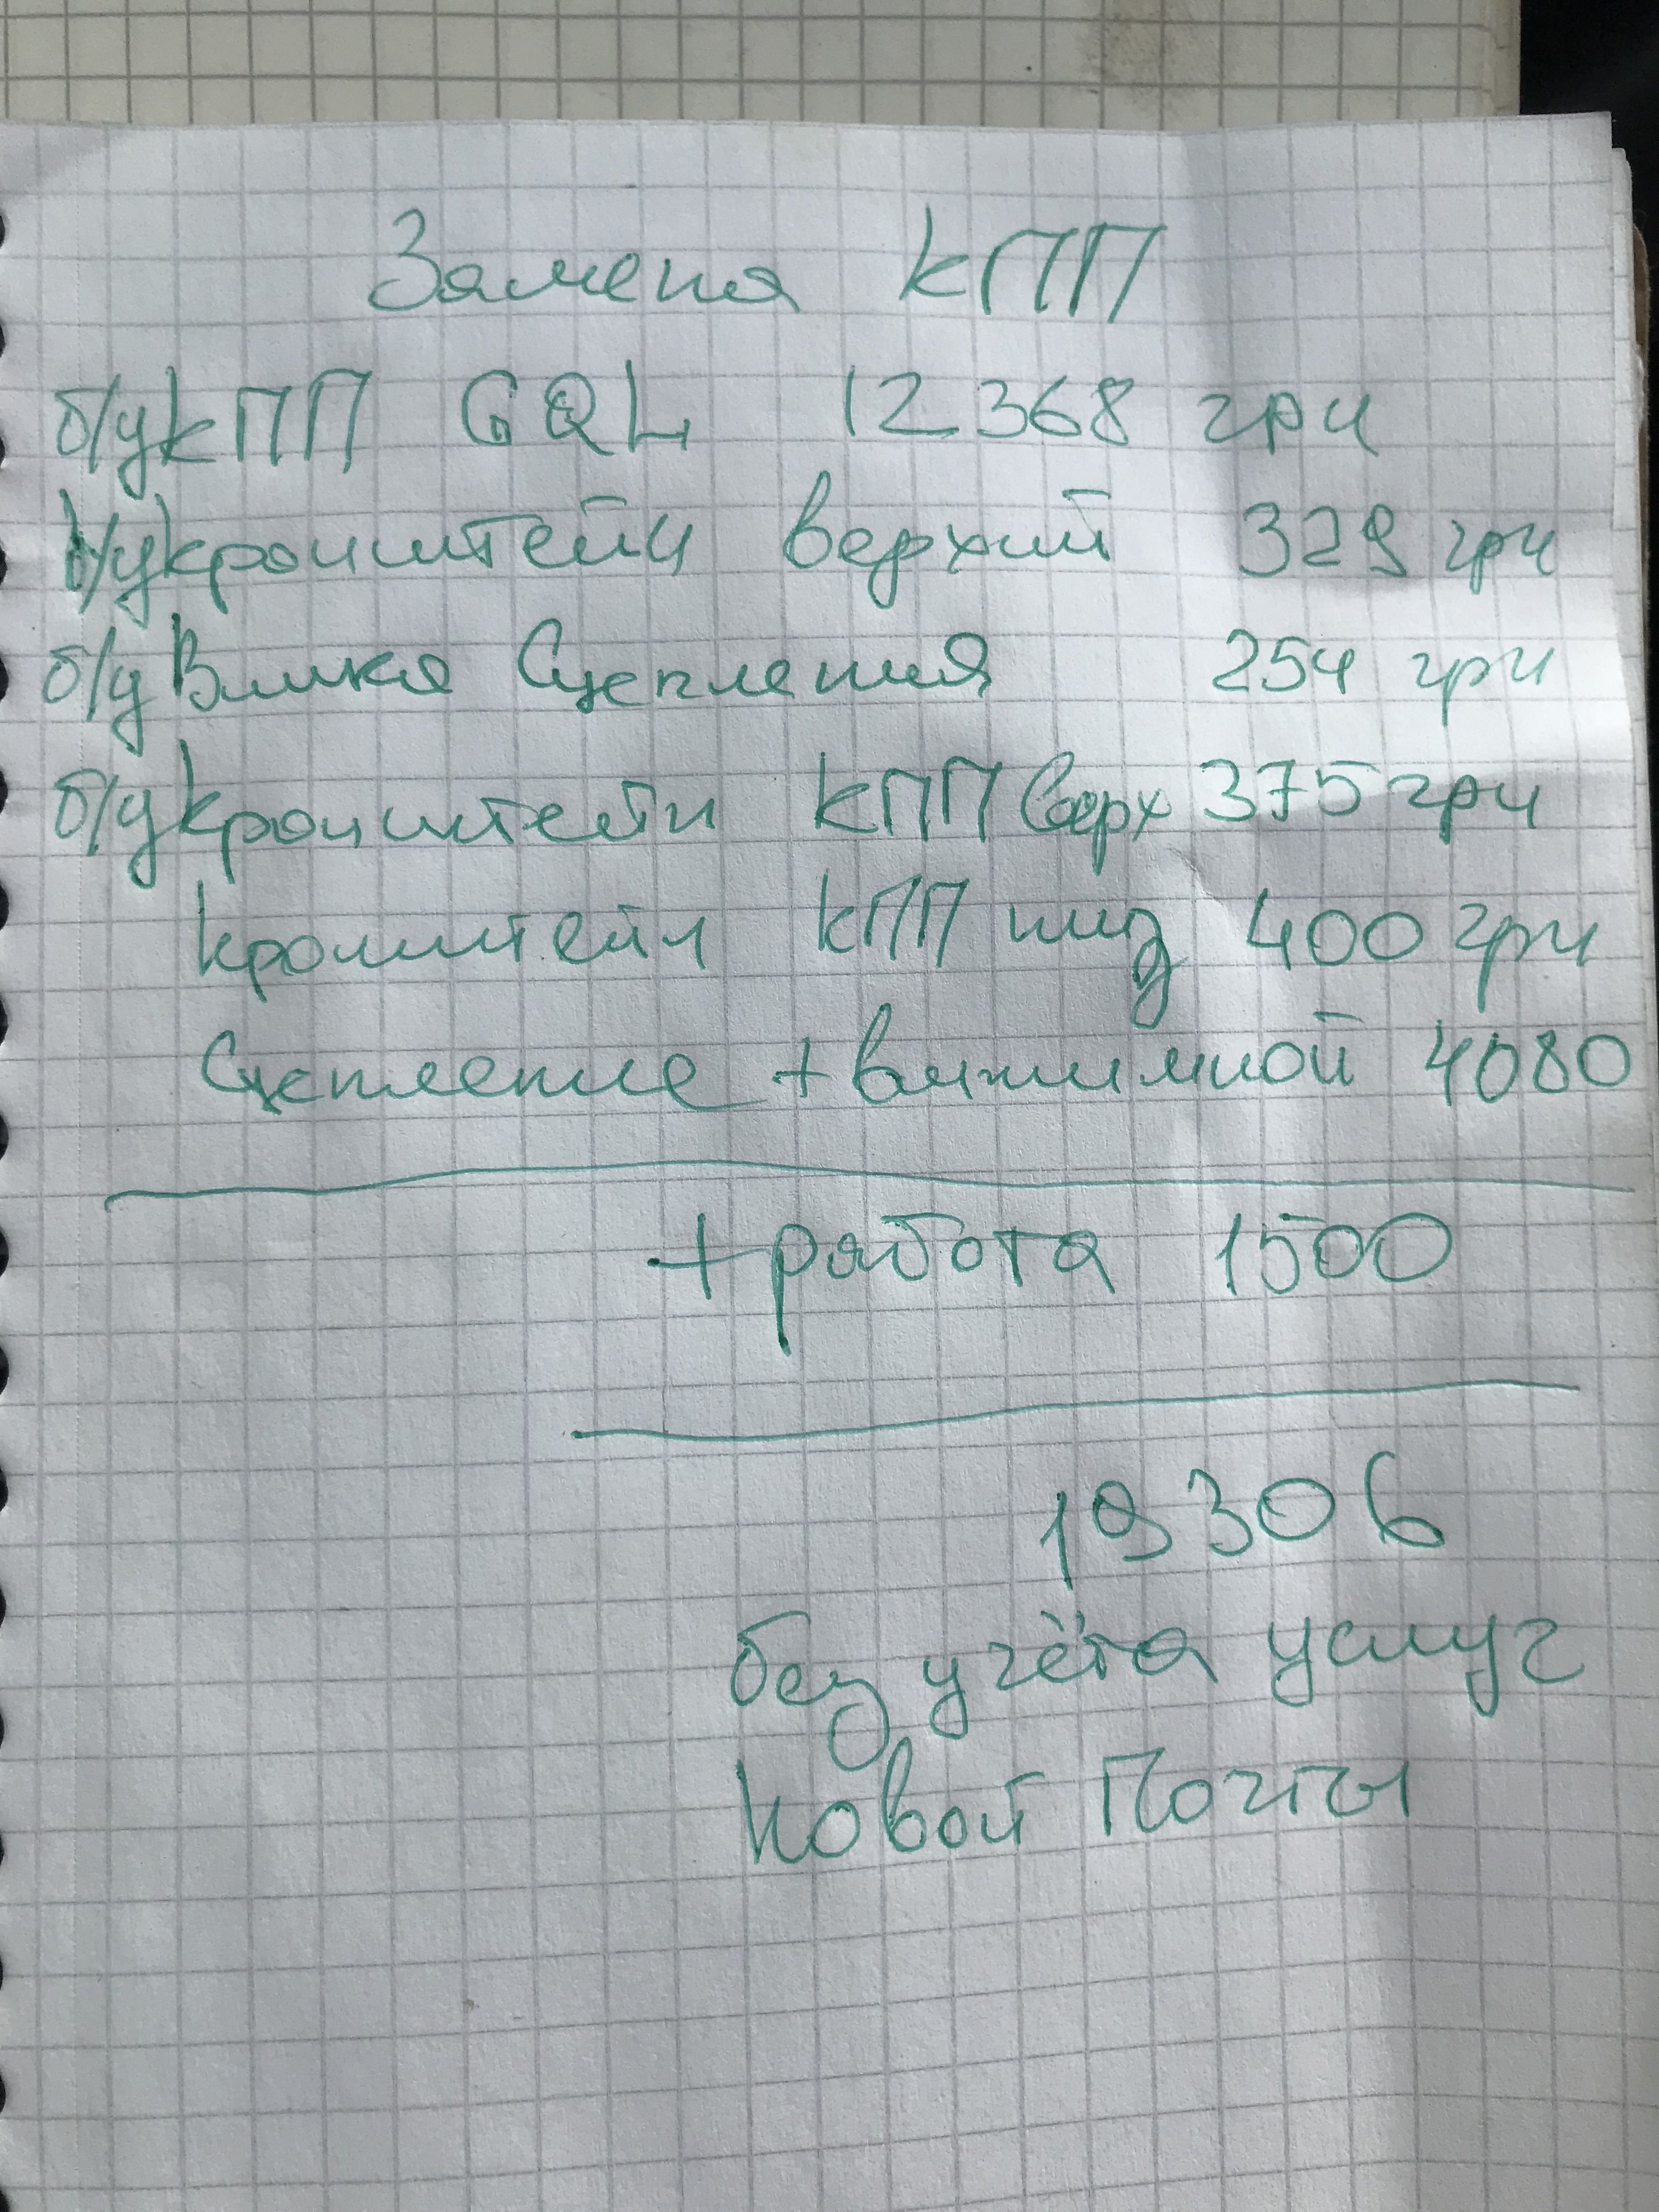 Замена КПП
б/у КПП GQL 12368 грн
б/у кронштейн верхний 329 грн
б/у Вилка Сцепления 254 грн
б/у кронштейн КПП верх 375 грн
кронштейн КПП низ 400 грн
Сцепление + выжимной 4080
+ работа 1500
19306
без учёта услуг
Новой Почты